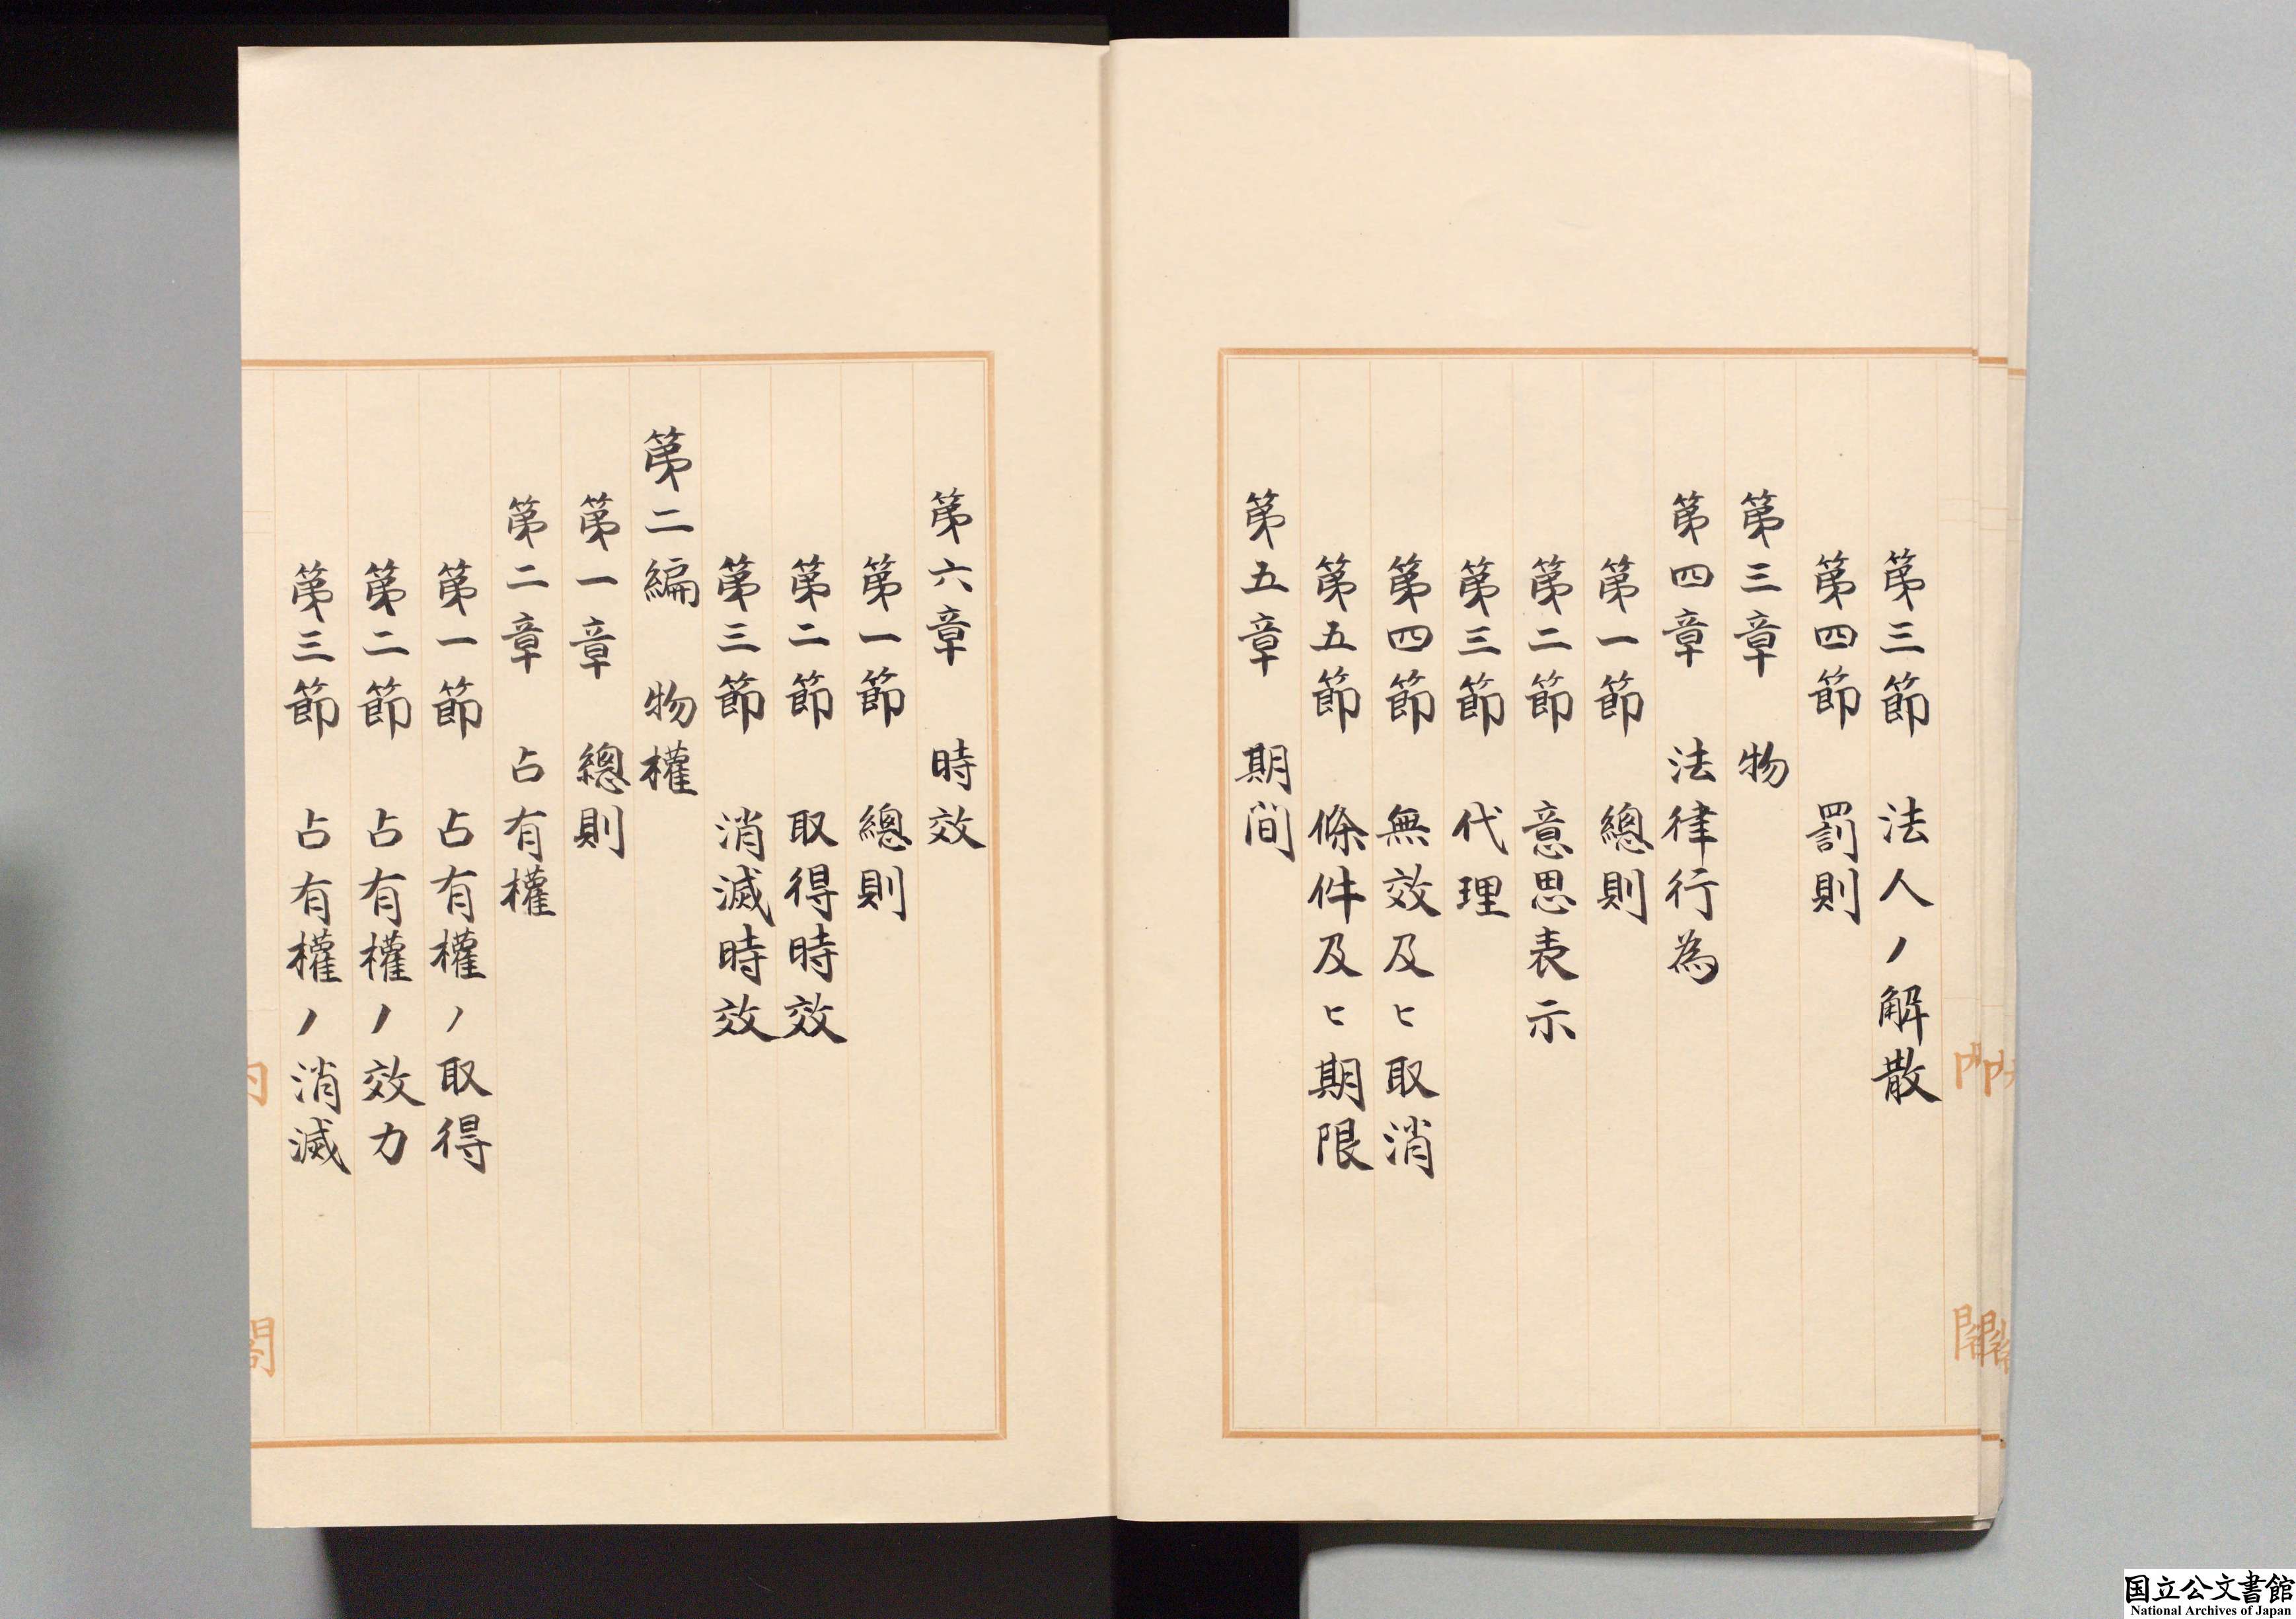 第三節　法人ノ解散
第四節　罰則
第三章　物
第四章　法律行為
第一節　總則
第二節　意思表示
第三節　代理
第四節　無效及ヒ取消
第五節　條件及ヒ期限
第五章　期間
第六章　時效
第一節　總則
第二節　取得時效
第三節　消滅時效
第二編　物權
第一章　總則
第二章　占有權
第一節　占有權ノ取得
第二節　占有權ノ效力
第三節　占有權ノ消滅
内閣
国立公文書館
National Archives of Japan